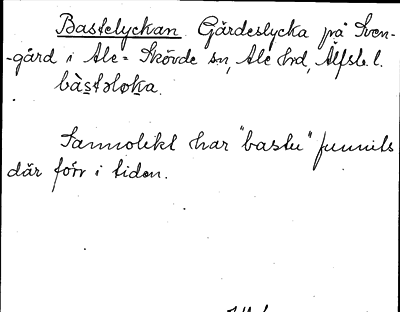 Bastelyckan Gärdeslycka på Sven-
-gård i Ale-Skövde sn, Ale hd, Älfsb. l.
bàstəloka.
Sannolikt har "bastu" funnits
där förr i tiden.